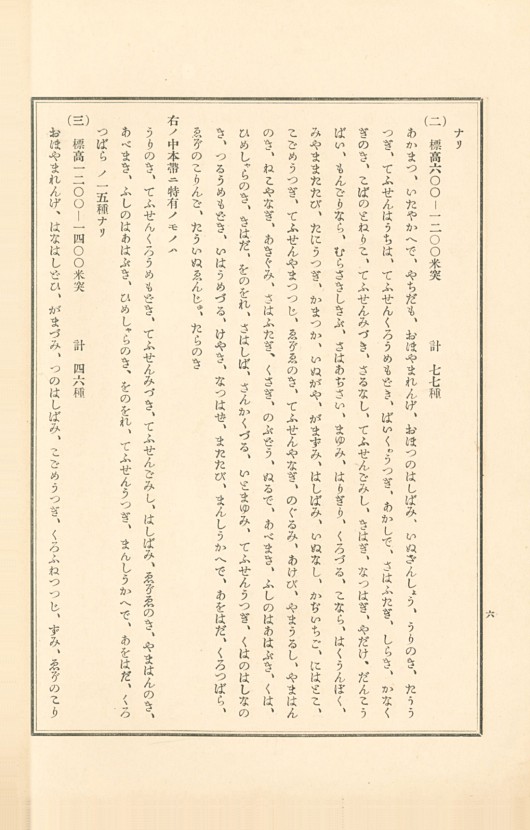 ナリ
(二)　標高六〇〇—一二〇〇米突　　計　七七種
あかまつ、いたやかへで、やちだも、おほやまれんげ、おほつのはしばみ、いぬざんしょう、うりのき、たうう
つぎ、てふせんはうちは、てふせんくろうめもどき、ばいくゎうつぎ、あかしで、さはふたぎ、しらき、かなく
ぎのき、こばのとねりこ、てふせんみづき、さるなし、てふせんごみし、きはぎ、なつはぎ、やだけ、だんこう
ばい、もんごりなら、むらさきしきぶ、さはあぢさい、まゆみ、はりぎり、くろづる、こなら、はくうんぼく、
みやままたたび、たにうつぎ、かまつか、いぬがや、がまずみ、はしばみ、いぬなし、かぢいちご、にはとこ、
こごめうつぎ、てふせんやまつつじ、ゑぞゑのき、てふせんやなぎ、のぐるみ、あけび、やまうるし、やまはん
のき、ねこやなぎ、あきぐみ、さはふたぎ、くさぎ、のぶどう、ぬるで、あべまき、ふしのはあはぶき、くは、
ひめしゃらのき、きはだ、をのをれ、さはしば、さんかくづる、いとまゆみ、てふせんうつぎ、くはのはしなの
き、つるうめもどき、いはうめづる、けやき、なつはぜ、またたび、まんしうかへで、あをはだ、くろつばら、
ゑぞのこりんご、たういぬゑんじゅ、たらのき
右ノ中本帶ニ特有ノモノハ
うりのき、てふせんくろうめもどき、てふせんみづき、てふせんごみし、はしばみ、ゑぞゑのき、やまはんのき、
あべまき、ふしのはあはぶき、ひめしゃらのき、をのをれ、てふせんうつぎ、まんしうかへで、あをはだ、くろ
つばら ノ一五種ナリ
(三)　標高一二〇〇—一四〇〇米突　　計　四六種
おほやまれんげ、はなはしどひ、がまづみ、つのはしばみ、こごめうつぎ、くろふねつつじ、ずみ、ゑぞのこり
六